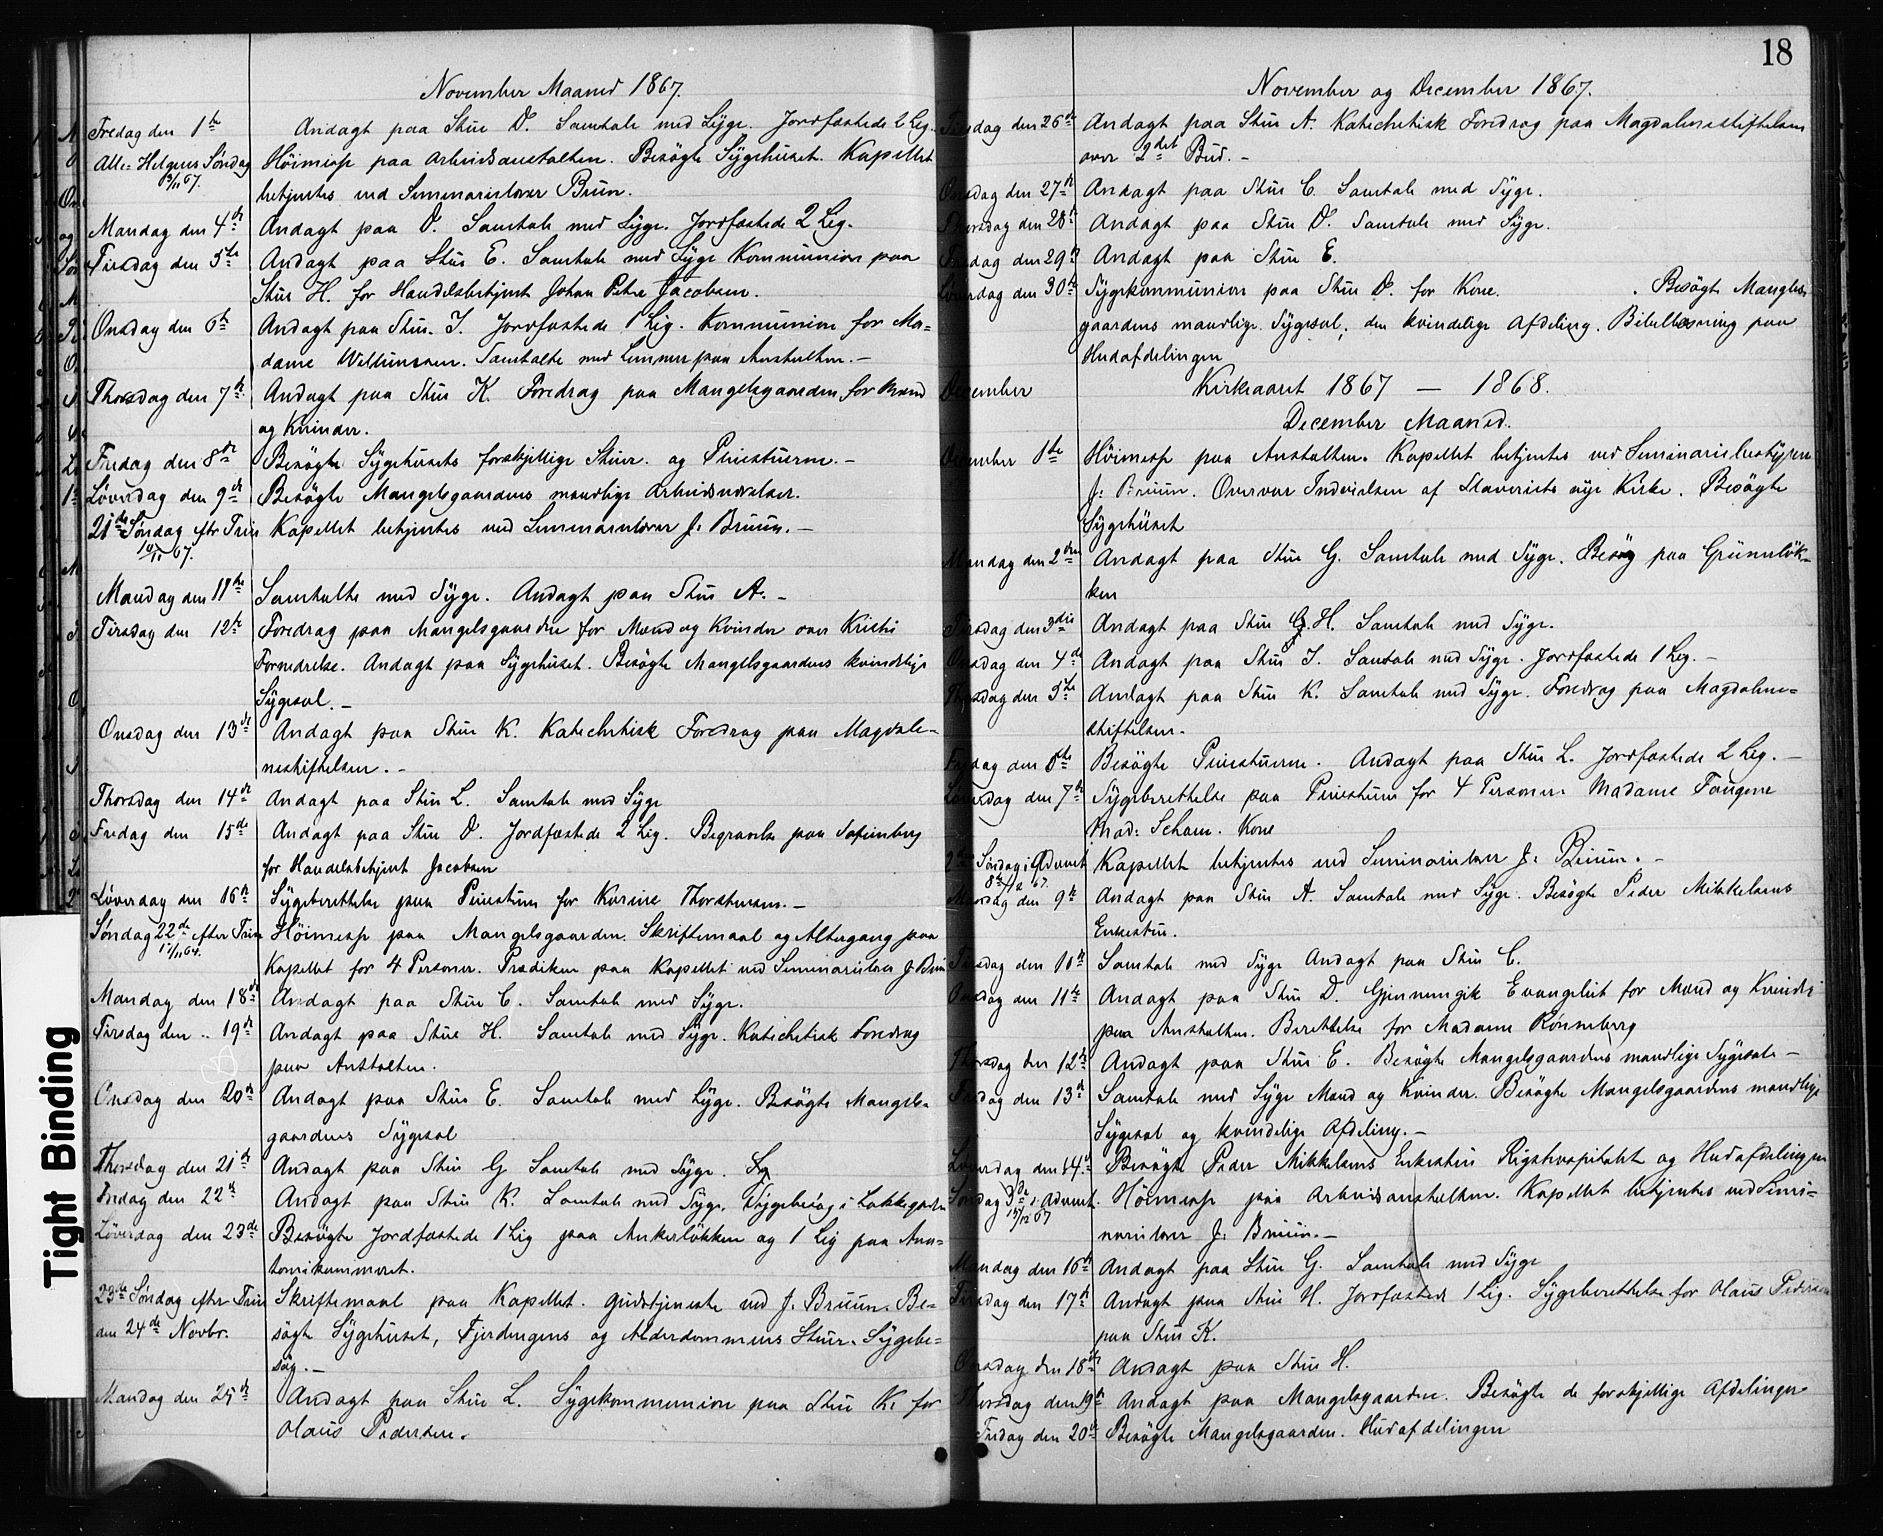 November Maaned 1867.
Fredag den 1ste Andagt paa Stue D. Samtale med Syge. Jordfæstede 2 Lig.
Alle-Helgens Søndag Höimesse paa Arbeidsanstalten. Besögte Sygehuset. Kapellet
3/11 67. betjentes ved Seminarielærer Brun.
Mandag den 4de Andagt paa D. Samtale med Syge. Jordfæstede 2 Lig.
Tirsdag den 5te Andagt paa Stue E. Samtale med Syge Kommunion paa
Stue H. for Handelsbetjent Johan Peter Jacobsen.
Onsdag den 6te Andagt paa Stue I. Jordfæstede 1 Lig. Kommunion for Ma-
dame . Samtalte med Lemmer paa Anstalten. —
Thorsdag den 7de Andagt paa Stue K. Foredrag paa Mangelsgaarden for Mænd
og Kvinder.
Fredag den 8de Besögte Sygehusets forskjellige Stuer og Pleiestuerne. —
Løverdag den 9de Besögte Mangelsgaardens mandlige Arbeidsværelser.
21de Søndag efter Trin Kapellet betjentes ved Seminarielærer J. Bruun. —
10/11 67.
Mandag den 11te Samtalte med Syge. Andagt paa Stue A. —
Tirsdag den 12te Foredrag paa Mangelsgaarden for Mænd og Kvinder over Kristi
Fornedrelse. Andagt paa Sygehuset. Besögte Mangelsgaardens kvindelige
Sygesal. —
Onsdag den 13de Andagt paa Stue K. Katechetisk Foredrag paa Magdale-
nestiftelsen. —
Thorsdag den 14de Andagt paa Stue L. Samtale med Syge
Fredag den 15de Andagt paa Stue D. Jordfæstede 2 Lig. Begravelse paa Sofienberg
for Handelsbetjent Jacobsen
Løverdag den 16de Sygeberettelse paa Pleiestuen for Karine Thorstensen. —
Søndag 22de efter Trin Höimesse paa Mangelsgaarden. Skriftemaal og Altergang paa
Kapellet for 4 Personer. Prædiken paa Kapellet ved Seminarielærer J. Brun
Mandag den 18de Andagt paa Stue C. Samtale med Syge.
Tirsdag den 19de Andagt paa Stue H. Samtale med Syge. Katechetisk Foredrag
paa Anstalten.
Onsdag den 20de Andagt paa Stue E. Samtale med Syge. Besögte Mangels-
gaardens Sygesal
Thorsdag den 21de Andagt paa Stue G Samtale med Syge.
Fredag den 22de Andagt paa Stue K. Samtale med Syge. Sygebesög i
Løverdag den 23de Besögte Jordfæstede 1 Lig paa Ankerlökken og 1 Lig paa Ana-
tomikammeret.
23de Søndag efter Trin Skriftemaal paa Kapellet. Gudstjeneste ved J. Bruun. Be-
den 24de Novbr. sögte Sygehuset, Fjerdingens og Alderdommens Stuer. Sygebe-
sög. —
Mandag den 25de Andagt paa Stue L. Sygekommunion paa Stue K. for
Olaus Pedersen.
18
November og December 1867.
Tirsdag den 26de Andagt paa Stue A. Katechetisk Foredrag paa Magdalenestiftelsen
over 2det Bud. —
Onsdag den 27de Andagt paa Stue C. Samtale med Syge.
Thorsdag den 28de Andagt paa Stue D. Samtale med Syge.
Fredag den 29de Andagt paa Stue E.
Løverdag den 30te Sygekommunion paa Stue D. for Kone. Besögte Mangels-
gaardens mandlige Sygesal, den kvindelige Afdeling. Bibellæsning paa
Hudafdelingen
December Kirkeaaret 1867 — 1868.
December Maaned.
December 1ste Höimesse paa Anstalten. Kapellet betjentes ved Seminariebestyrer
J. Bruun. Overvar Indvielsen af Slaveriets nye Kirke. Besögte
Sygehuset
Mandag den 2den Andagt paa Stue G. Samtale med Syge. Besög paa Grünerlök-
ken
Tirsdag den 3die Andagt paa Stue H. Samtale med Syge.
Onsdag den 4de Andagt paa Stue I. Samtale med Syge. Jordfæstede 1 Lig. —
Thorsdag den 5te Andagt paa Stue K. Samtale med Syge. Foredrag paa Magdalene-
stiftelsen.
Fredag den 6te Besögte Pleiestuerne. Andagt paa Stue L. Jordfæstede 2 Lig. —
Løverdag den 7de Sygeberettelse paa Pleiestuen for 4 Personer Madame
Mad: . Kone
2den Søndag i Advent Kapellet betjentes ved Seminarielærer J. Bruun. —
8/12 67.
Mandag den 9de Andagt paa Stue A. Samtale med Syge. Besögte Peder Mikkelsens
Enkestue.
Tirsdag den 10de Samtale med Syge Andagt paa Stue C.
Onsdag den 11te Andagt paa Stue D. Gjennemgik Evangeliet for Mænd og Kvinder
paa Anstalten. Berettelse for Madame Rönneberg
Thorsdag den 12te Andagt paa Stue E. Besögte Mangelsgaardens mandlige Sygesale —
Fredag den 13de Samtale med Syge Mænd og Kvinder. Besögte Mangelsgaardens mandlige
Sygesal og kvindelige Afdeling. —
Løverdag den 14de Besögte Peder Mikkelsens Enkestue Rigshospitalet og Hudafdelingen
Søndag 3die i Advent. Höimesse paa Arbeidsanstalten. Kapellet betjentes ved Semi-
15/12 67 narielærer J. Bruun. —
Mandag den 16de Andagt paa Stue G. Samtale med Syge
Tirsdag den 17de Andagt paa Stue H. Jordfæstede 1 Lig. Sygeberettelse for Olaus Pedersen
paa Stue K.
Onsdag den 18de Andagt paa Stue H.
Thorsdag den 19de Andagt paa Mangelsgaarden. Besögte de forskjellige Afdelinger
Fredag den 20de Besögte Mangelsgaarden. Hudafdelingen
Tight Binding